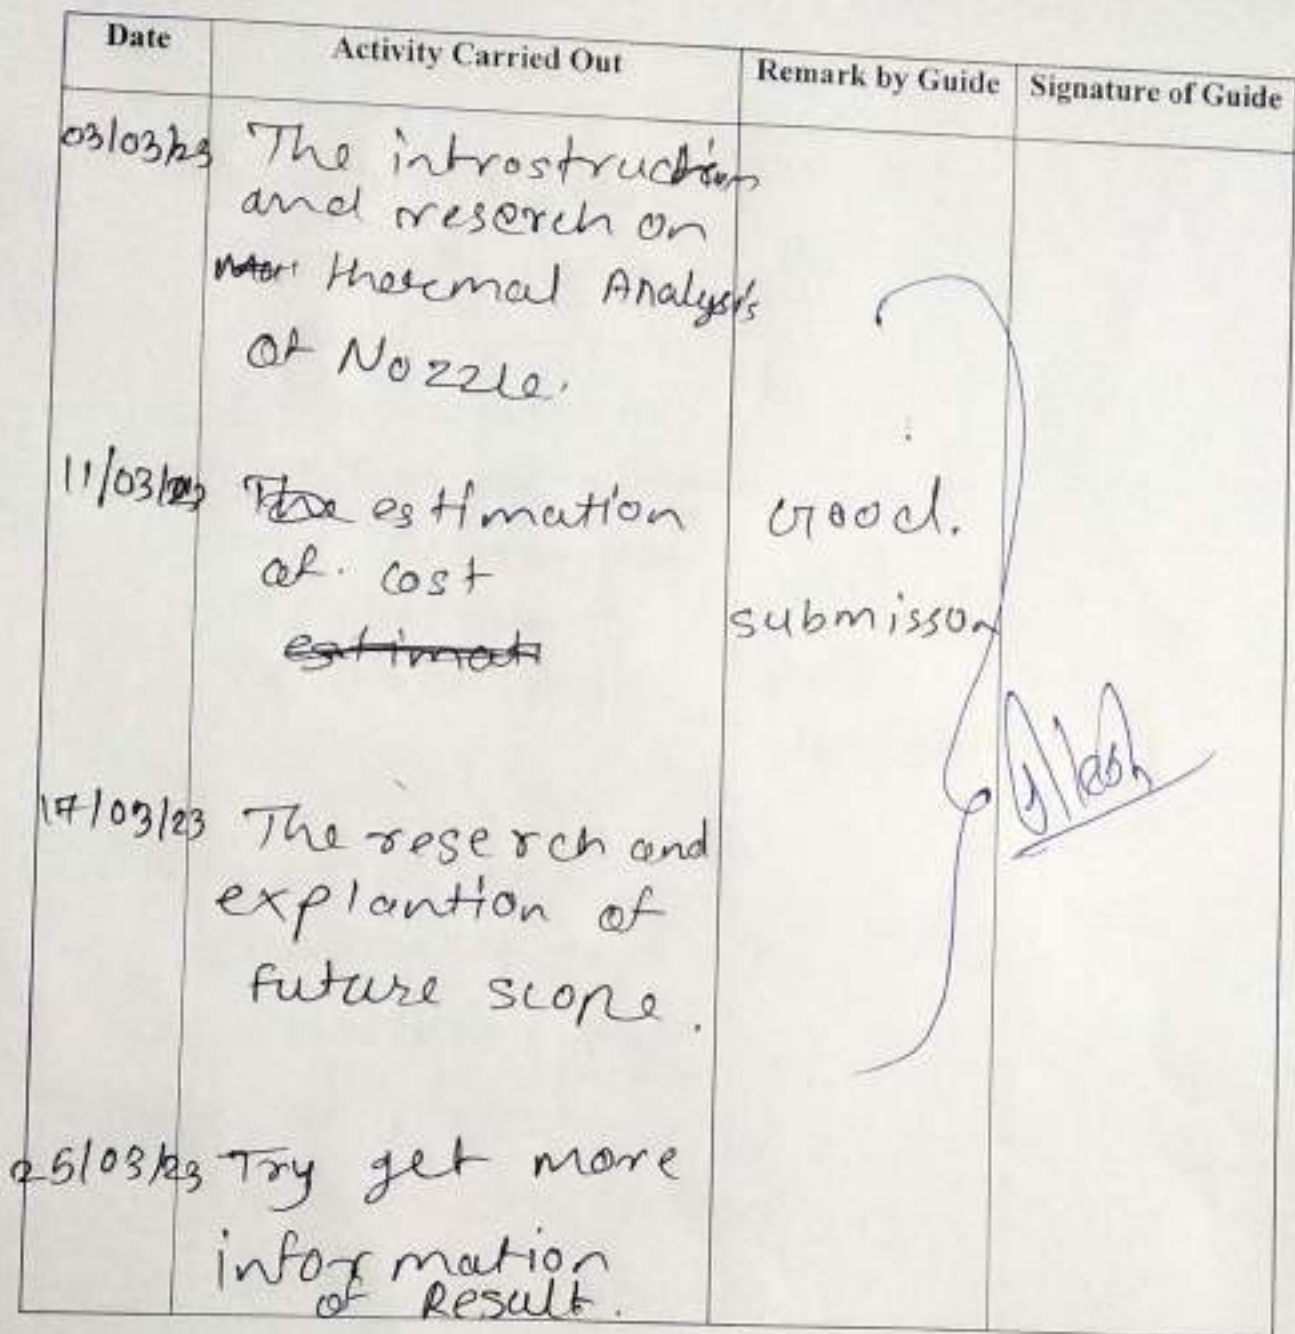 Date Activity Carried Out Remark by Guide Signature of Guide
03/03/23 The introstruction
and reserch on
thermal Analysis
of Nozzle.
11/03/23 The estimation Good.
of. cost submisson
estimati
17/03/23 The reserch and
explantion of
future scope.
25/03/23 Try get more
information
of Result.